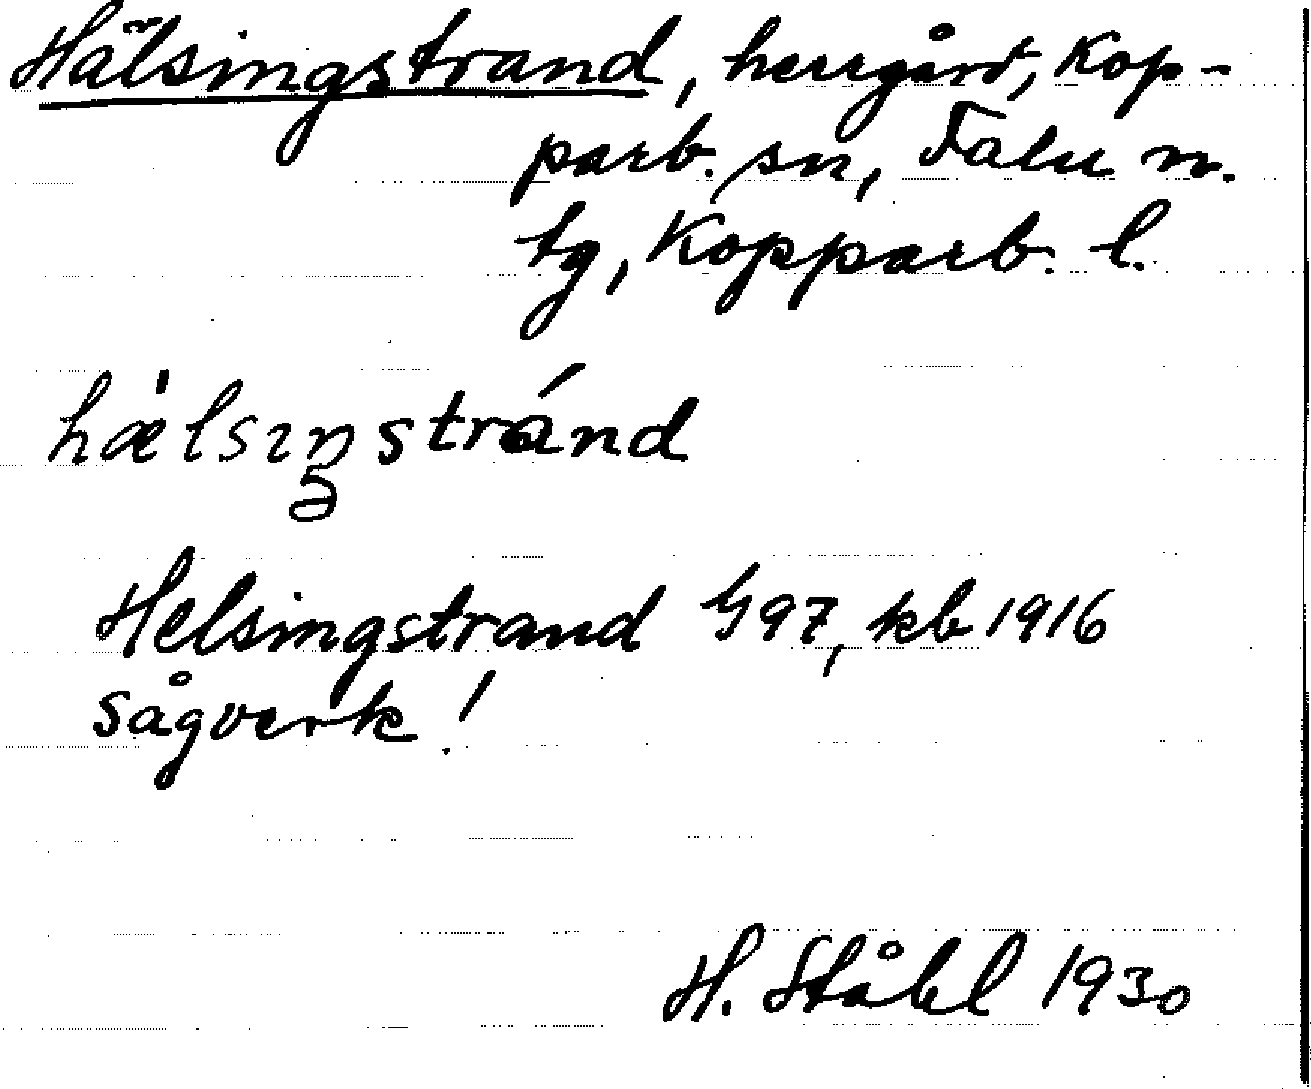 Hälsingstrand, herrgård, Kop-
parb. sn, Falu n.
tg, Kopparb. l.
hæ̍lsıŋstránd
Helsingstrand G97, kb 1916
sågverk!
H. Ståhl 1930